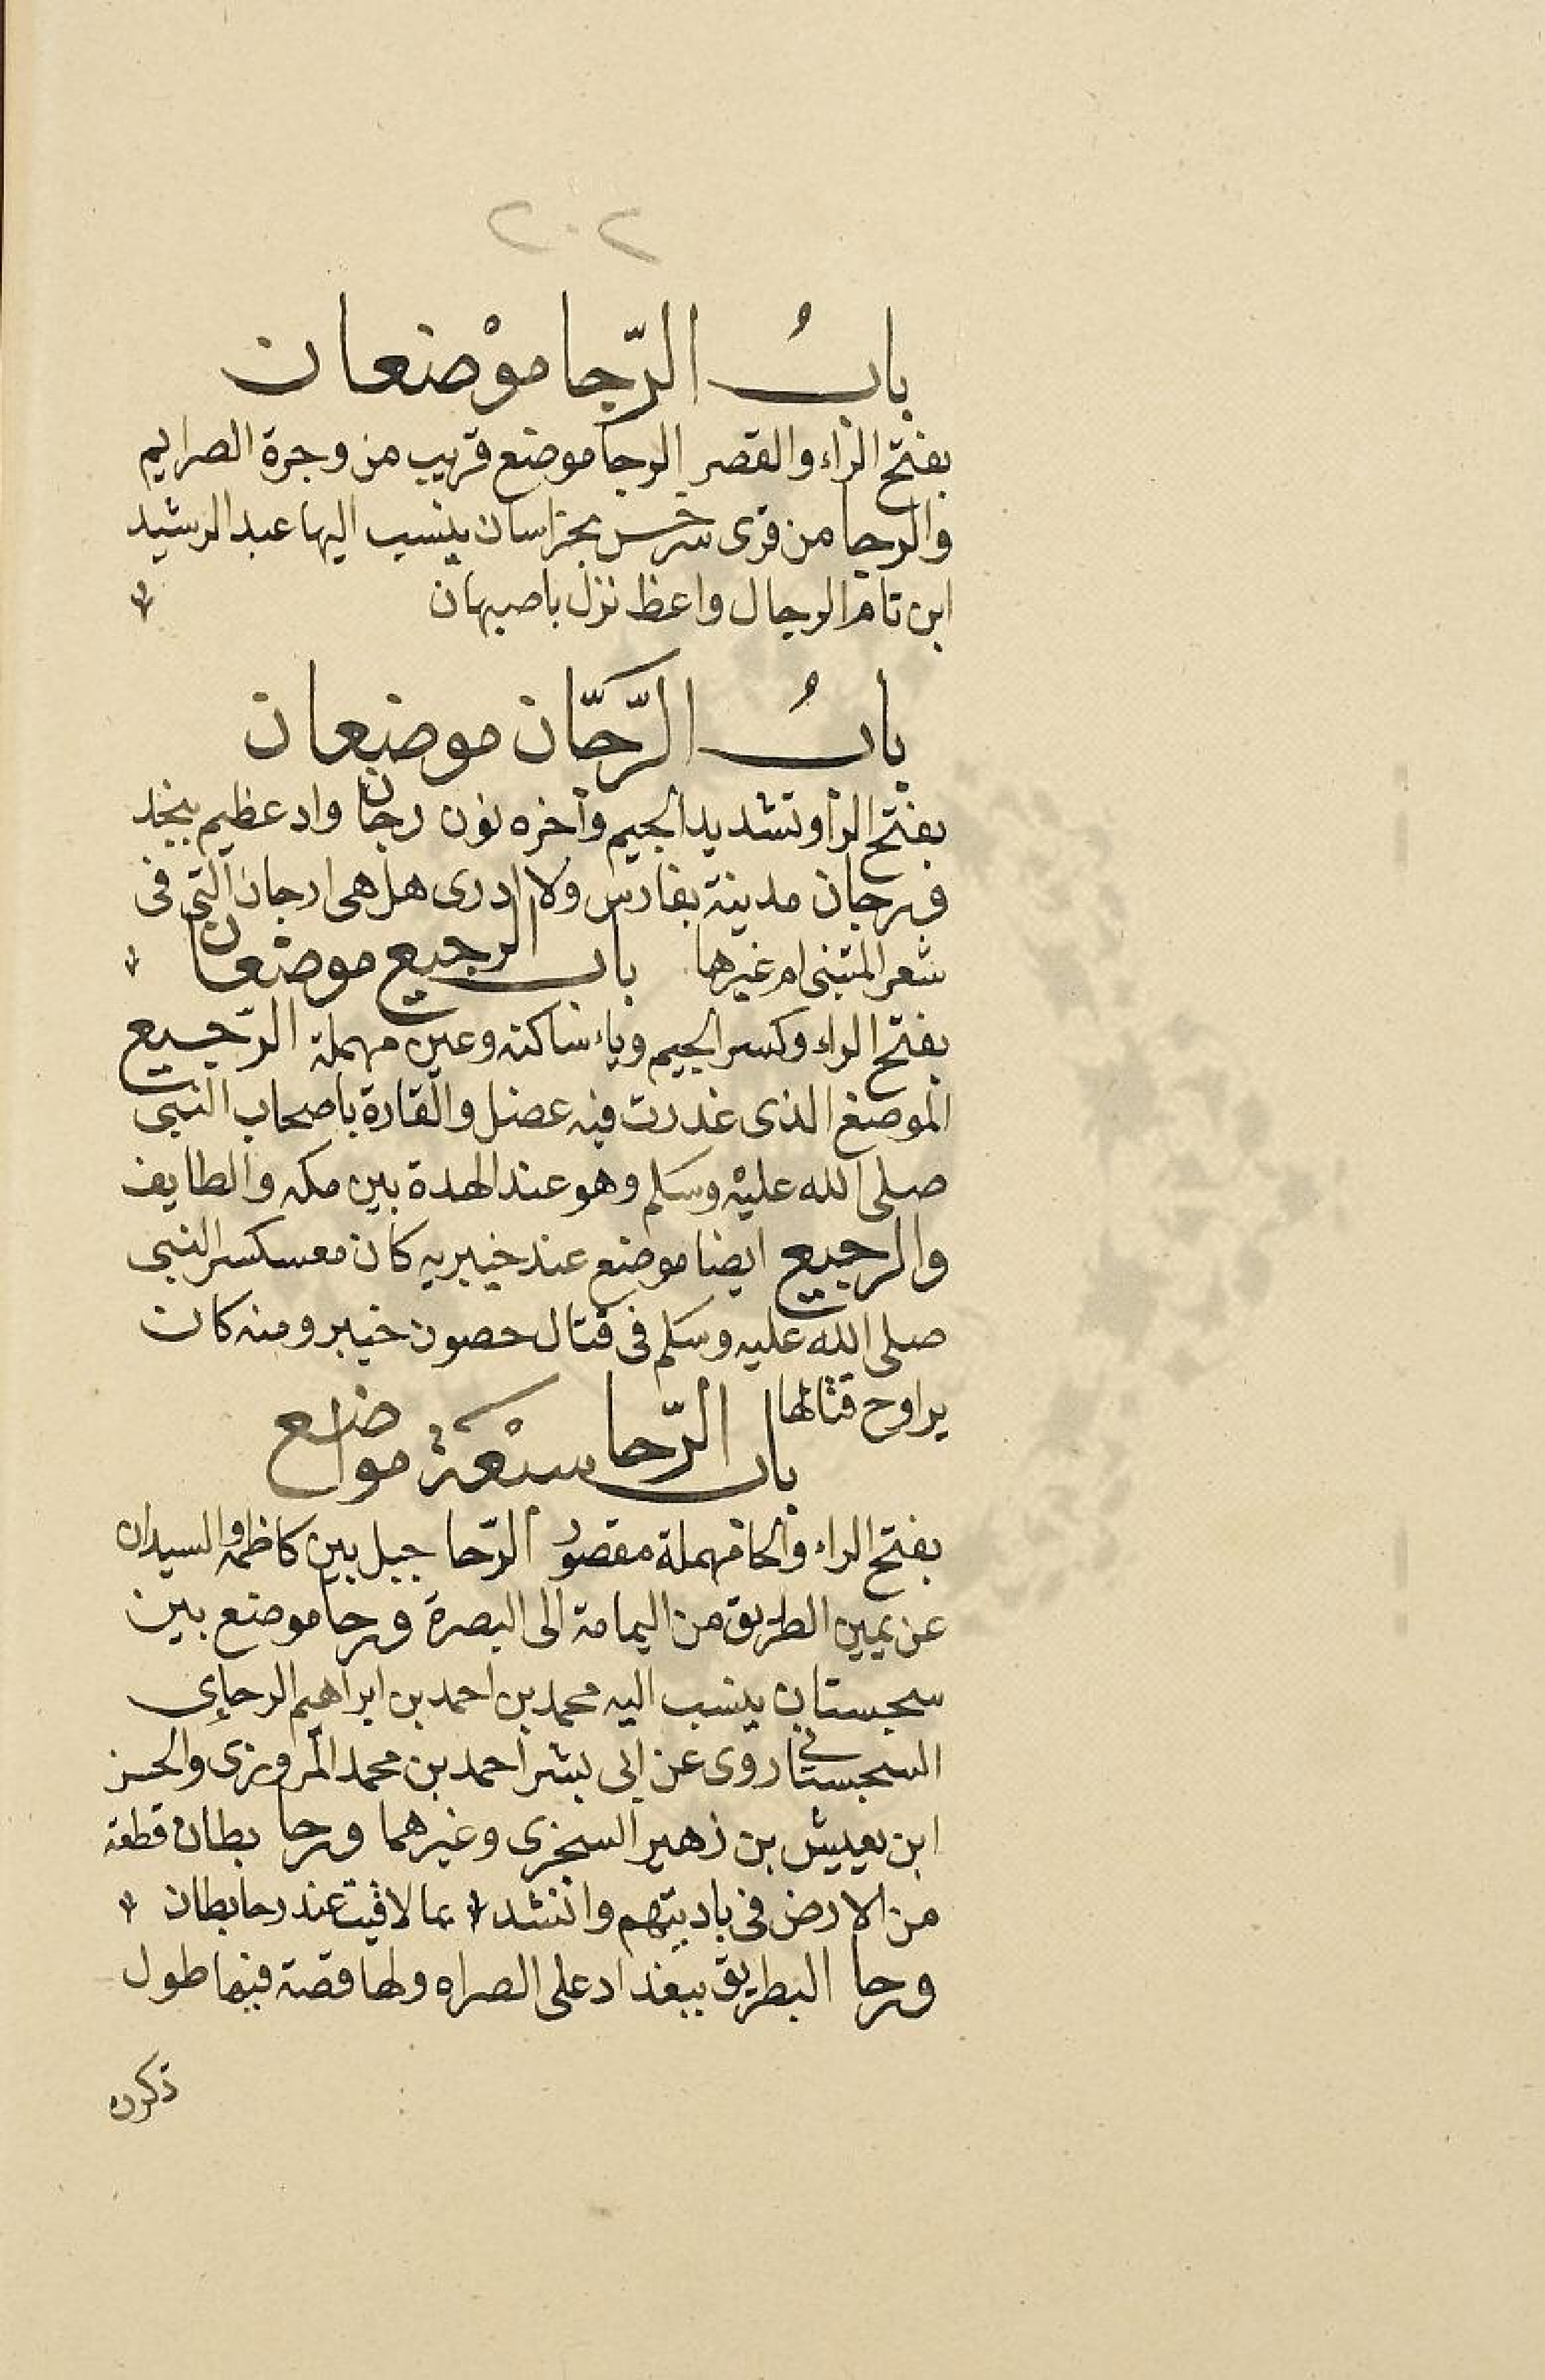 ٢٠٢
بابُ الرّجا موْضعان
بفتح الراء والقصر الرجا موضع قريب من وجرة الصرايم
والرجا من قرى سرخس بخراسان ينسب اليها عبد الرشيد
ابن تام الرجال واعظ نزل باصبهان
بابُ الرَّجّان موضعان
بفتح الرا وتشديد الجيم وآخره نون رجان واد عظيم بنجد
ورجان مدينة بفارس ولا ادرى هل هى ارجان التى فى
شعر المتنبى ام غيرها باب الرجيع موضعان
بفتح الراء وكسر الجيم وياء ساكنه وعين مهملة الرّجيع
الموضع الذى غدرت فيه عضل والقارة باصحاب النبى
صلى الله عليْه وسلم وهو عند الهدة بين مكه والطايف
والرجيع ايضا موضع عند خيبر به كان معسكسر النبى
صلى الله عليه وسلم فى قتال حصون خيبر ومنه كان
يراوح قتالها
باب الرّحا سبْعة مواضع
بفتح الراء والحا مهملة مقصورُ الرّحا جبل بين كاظمه والسيدان
عن يمين الطريق من اليمامة الى البصرة ورحا موضع بين
سجستان ينسب اليه محمد بن احمد بن ابراهيم الرحاى
السجستانى روى عن ابى بشر احمد بن محمد المروزى والحسن
ابن يعيش بن زهير السخزى وغيرهما ورحا بطان قطعة
من الارض فى باديتهم وانشد بما لاقيت عند رحا بطان
ورحا البطريق ببغداد على الصراه ولها قصة فيها طول
ذكرت